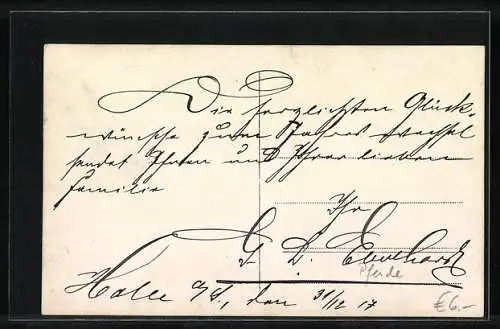 Die herzlichsten Glück-
wünsche zum Jahreswechsel
sendet Ihnen und Ihrer lieben
Familie
Ihr
G. L. Eberhardt
Pferde
Halle a/S., den 31/12 17
€6.-